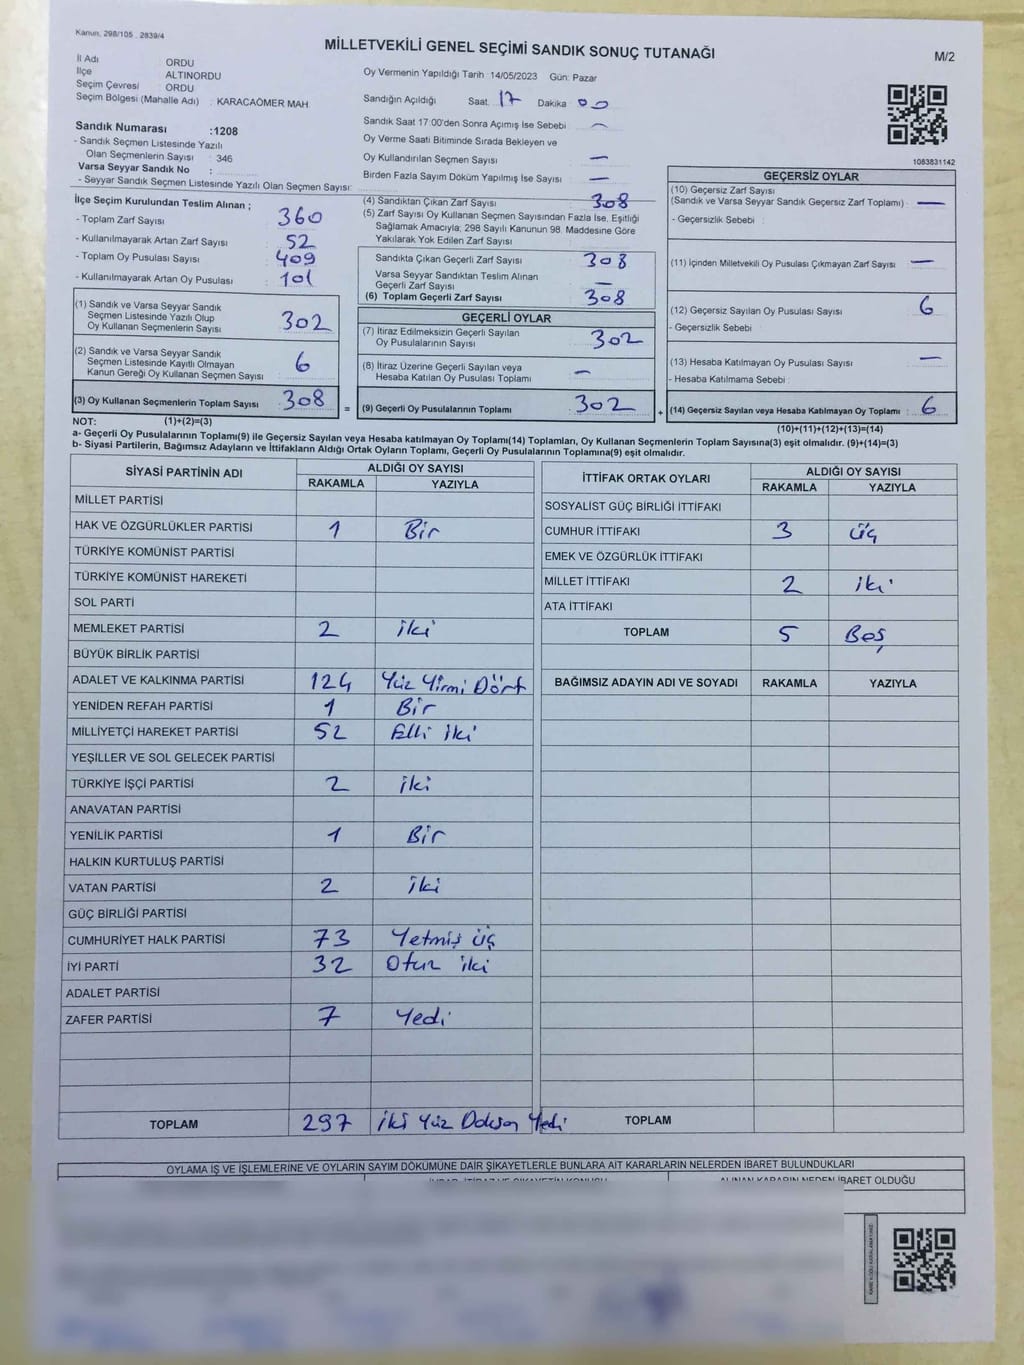 Kanun, 298/105 , 2839/4
MİLLETVEKİLİ GENEL SEÇİMİ SANDIK SONUÇ TUTANAĞI
M/2
İl Adı : ORDU
İlçe ALTINORDU
Seçim Çevresi : ORDU
Seçim Bölgesi (Mahalle Adı) : KARACAÖMER MAH
Oy Vermenin Yapıldığı Tarih 14/05/2023 Gün: Pazar
Sandığın Açıldığı Saat. 17 Dakika 00
Sandık Saat 17:00'den Sonra Açımış İse Sebebi —
Oy Verme Saati Bitiminde Sırada Bekleyen ve
Oy Kullandırılan Seçmen Sayısı —
Birden Fazla Sayım Döküm Yapılmış İse Sayısı —
1083831142
Sandık Numarası :1208
- Sandık Seçmen Listesinde Yazılı
Olan Seçmenlerin Sayısı : 346
Varsa Seyyar Sandık No :
- Seyyar Sandık Seçmen Listesinde Yazılı Olan Seçmen Sayısı:
İlçe Seçim Kurulundan Teslim Alınan ;
- Toplam Zarf Sayısı : 360
- Kullanılmayarak Artan Zarf Sayısı : 52
- Toplam Oy Pusulası Sayısı : 409
- Kullanılmayarak Artan Oy Pusulası : 101
(1) Sandık ve Varsa Seyyar Sandık
Seçmen Listesinde Yazılı Olup
Oy Kullanan Seçmenlerin Sayısı : 302
(2) Sandık ve Varsa Seyyar Sandık
Seçmen Listesinde Kayıtlı Olmayan
Kanun Gereği Oy Kullanan Seçmen Sayısı : 6
(3) Oy Kullanan Seçmenlerin Toplam Sayısı : 308
(1)+(2)=(3)
(4) Sandıktan Çıkan Zarf Sayısı : 308
(5) Zarf Sayısı Oy Kullanan Seçmen Sayısından Fazla İse, Eşitliği
Sağlamak Amacıyla; 298 Sayılı Kanunun 98. Maddesine Göre
Yakılarak Yok Edilen Zarf Sayısı :
Sandıkta Çıkan Geçerli Zarf Sayısı : 308
Varsa Seyyar Sandıktan Teslim Alınan
Geçerli Zarf Sayısı : —
(6) Toplam Geçerli Zarf Sayısı : 308
GEÇERLİ OYLAR
(7) İtiraz Edilmeksizin Geçerli Sayılan
Oy Pusulalarının Sayısı : 302
(8) İtiraz Üzerine Geçerli Sayılan veya
Hesaba Katılan Oy Pusulası Toplamı : —
= (9) Geçerli Oy Pusulalarının Toplamı : 302 +
GEÇERSİZ OYLAR
(10) Geçersiz Zarf Sayısı
(Sandık ve Varsa Seyyar Sandık Geçersiz Zarf Toplamı) : —
- Geçersizlik Sebebi :
(11) İçinden Milletvekili Oy Pusulası Çıkmayan Zarf Sayısı : —
(12) Geçersiz Sayılan Oy Pusulası Sayısı : 6
- Geçersizlik Sebebi :
(13) Hesaba Katılmayan Oy Pusulası Sayısı : —
- Hesaba Katılmama Sebebi :
(14) Geçersiz Sayılan veya Hesaba Katılmayan Oy Toplamı : 6
(10)+(11)+(12)+(13)=(14)
NOT:
a- Geçerli Oy Pusulalarının Toplamı(9) ile Geçersiz Sayılan veya Hesaba katılmayan Oy Toplamı(14) Toplamları, Oy Kullanan Seçmenlerin Toplam Sayısına(3) eşit olmalıdır. (9)+(14)=(3)
b- Siyasi Partilerin, Bağımsız Adayların ve İttifakların Aldığı Ortak Oyların Toplamı, Geçerli Oy Pusulalarının Toplamına(9) eşit olmalıdır.
SİYASİ PARTİNİN ADI ALDIĞI OY SAYISI
RAKAMLA YAZIYLA
MİLLET PARTİSİ
HAK VE ÖZGÜRLÜKLER PARTİSİ 1 Bir
TÜRKİYE KOMÜNİST PARTİSİ
TÜRKİYE KOMÜNİST HAREKETİ
SOL PARTİ
MEMLEKET PARTİSİ 2 iki
BÜYÜK BİRLİK PARTİSİ
ADALET VE KALKINMA PARTİSİ 124 Yüz Yirmi Dört
YENİDEN REFAH PARTİSİ 1 Bir
MİLLİYETÇİ HAREKET PARTİSİ 52 Elli iki
YEŞİLLER VE SOL GELECEK PARTİSİ
TÜRKİYE İŞÇİ PARTİSİ 2 iki
ANAVATAN PARTİSİ
YENİLİK PARTİSİ 1 Bir
HALKIN KURTULUŞ PARTİSİ
VATAN PARTİSİ 2 iki
GÜÇ BİRLİĞİ PARTİSİ
CUMHURİYET HALK PARTİSİ 73 Yetmiş üç
İYİ PARTİ 32 Otuz iki
ADALET PARTİSİ
ZAFER PARTİSİ 7 Yedi
TOPLAM 297 iki Yüz Doksan Yedi
İTTİFAK ORTAK OYLARI ALDIĞI OY SAYISI
RAKAMLA YAZIYLA
SOSYALİST GÜÇ BİRLİĞİ İTTİFAKI
CUMHUR İTTİFAKI 3 üç
EMEK VE ÖZGÜRLÜK İTTİFAKI
MİLLET İTTİFAKI 2 iki
ATA İTTİFAKI
TOPLAM 5 Beş
BAĞIMSIZ ADAYIN ADI VE SOYADI RAKAMLA YAZIYLA
TOPLAM
OYLAMA İŞ VE İŞLEMLERİNE VE OYLARIN SAYIM DÖKÜMÜNE DAİR ŞİKAYETLERLE BUNLARA AİT KARARLARIN NELERDEN İBARET BULUNDUKLARI
ALINAN KARARIN NEDEN İBARET OLDUĞU